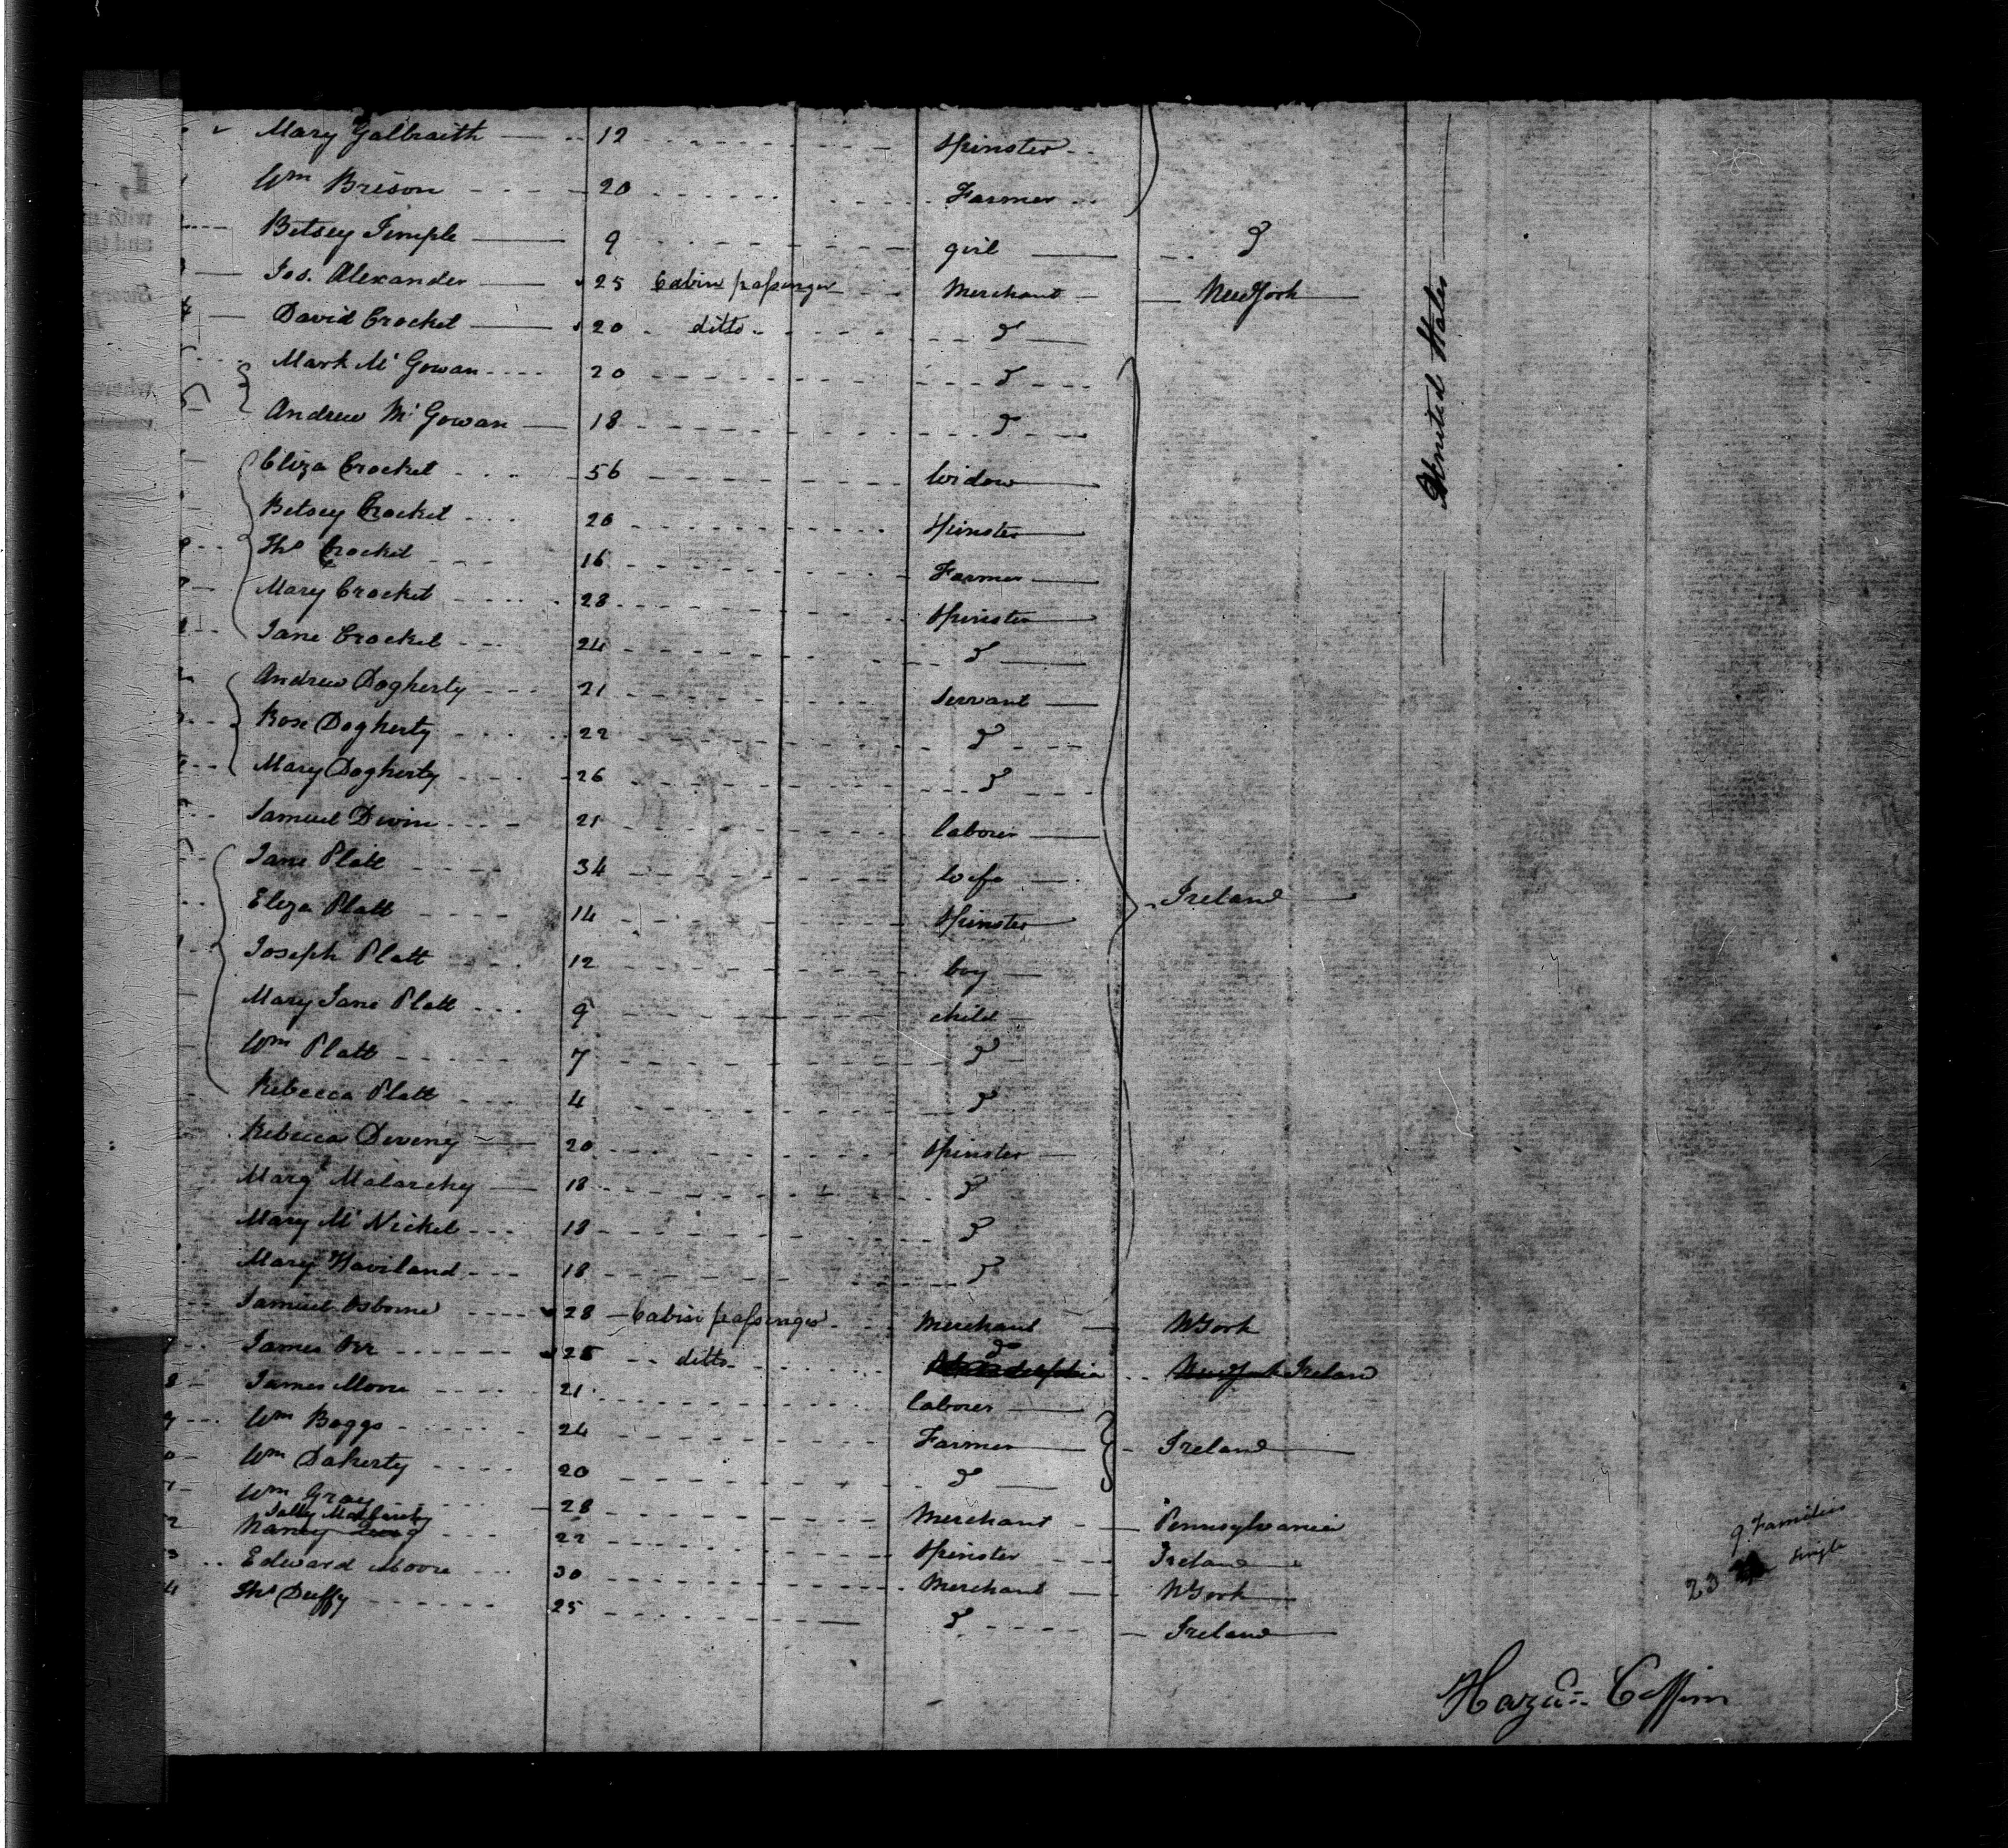 Mary Galbraith 12 Spinster
Wm Brison 20 Farmer
Betsey Temple 9 girl Do
Jos. Alexander 25 Cabin passenger Merchant New York
David Crocket 20 ditto Do
Mark Mc Gowan 20 Do
Andrew Mc Gowan 18 Do
Eliza Crocket 56 Widow
Betsey Crocket 20 Spinster
Thos Crocket 16 Farmer
Mary Crocket 28 Spinster
Jane Crocket 24 Do
Andrew Dogherty 21 Servant
Rose Dogherty 22 Do
Mary Dogherty 26 Do
Samuel Divin 21 laborer
Jane Platt 34 Wife
Ireland
Eliza Platt 14 Spinster
Joseph Platt 12 boy
Mary Jane Platt 9 child
Wm Platt 7 Do
Rebecca Platt 4 Do
Rebecca Deveny 20 Spinster
Marg Malarchy 18 Do
Mary Mc Nickel 18 Do
Mary Haviland 18 Do
Samuel Osborne 28 Cabin passenger Merchant NYork
James Orr 25 ditto Do New York Ireland
James Moore 21 laborer
Wm Boggs 24 Farmer Ireland
Wm Doherty 20 Do
Wm Gray 28 Merchant Pennsylvania
Sally
Nancy 22 Spinster Ireland
Edward Moore 30 Merchant NYork
Thos Duffy 25 Do Ireland
United States
9 Families
23 Single
Coffin